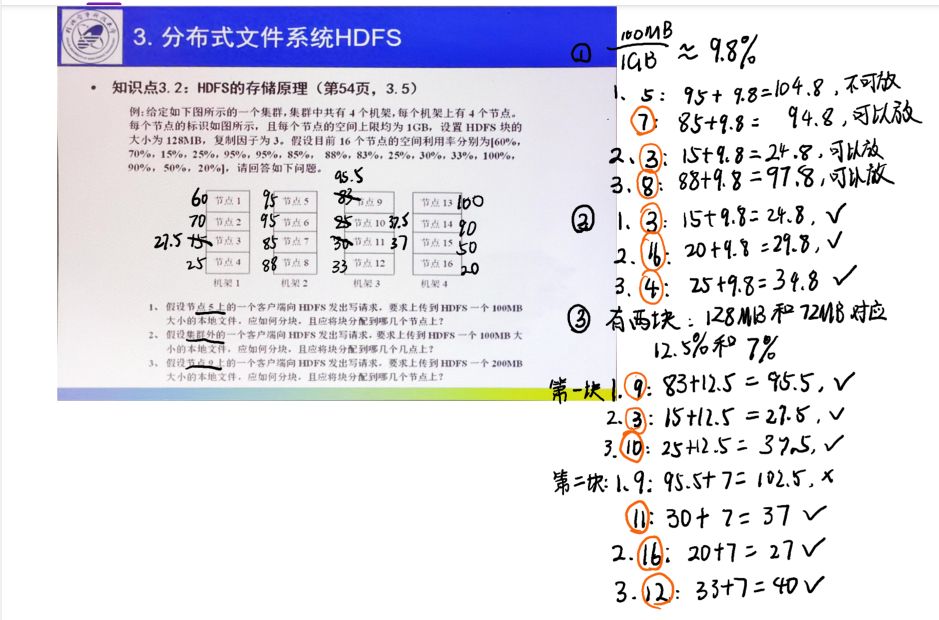 3. 分布式文件系统HDFS
• 知识点3.2：HDFS的存储原理（第54页，3.5）
例:给定如下图所示的一个集群,集群中共有 4 个机架,每个机架上有 4 个节点。
每个节点的标识如图所示，且每个节点的空间上限均为 1GB，设置 HDFS 块的
大小为 128MB，复制因子为 3。假设目前 16 个节点的空间利用率分别为[60%，
70%，15%，25%，95%，95%，85%， 88%，83%，25%，30%，33%，100%，
90%，50%，20%]，请回答如下问题。
95.5
60 节点 1 95 节点 5 83 节点 9 节点 13 100
70 节点 2 95 节点 6 25 节点 10 37.5 节点 14 90
27.5 15 节点 3 85 节点 7 30 节点 11 37 节点 15 50
25 节点 4 88 节点 8 33 节点 12 节点 16 20
机架 1 机架 2 机架 3 机架 4
1、 假设节点 5 上的一个客户端向 HDFS 发出写请求，要求上传到 HDFS 一个 100MB
大小的本地文件，应如何分块，且应将块分配到哪几个节点上？
2、 假设集群外的一个客户端向 HDFS 发出写请求，要求上传到 HDFS 一个 100MB 大
小的本地文件，应如何分块，且应将块分配到哪几个几点上？
3、 假设节点 9 上的一个客户端向 HDFS 发出写请求，要求上传到 HDFS 一个 200MB
大小的本地文件，应如何分块，且应将块分配到哪几个节点上？
① 100MB/1GB ≈ 9.8%
1、5：95+9.8=104.8，不可放
7：85+9.8= 94.8，可以放
2、3：15+9.8=24.8，可以放
3. 8：88+9.8=97.8，可以放
② 1. 3：15+9.8=24.8，✓
2. 16：20+9.8=29.8，✓
3. 4： 25+9.8=34.8 ✓
③ 有两块：128MB和72MB对应
12.5%和7%
第一块 1. 9：83+12.5=95.5，✓
2. 3：15+12.5=27.5，✓
3. 10：25+12.5=37.5，✓
第二块：1. 9：95.5+7=102.5，×
11：30+7=37 ✓
2. 16：20+7=27 ✓
3. 12：33+7=40 ✓